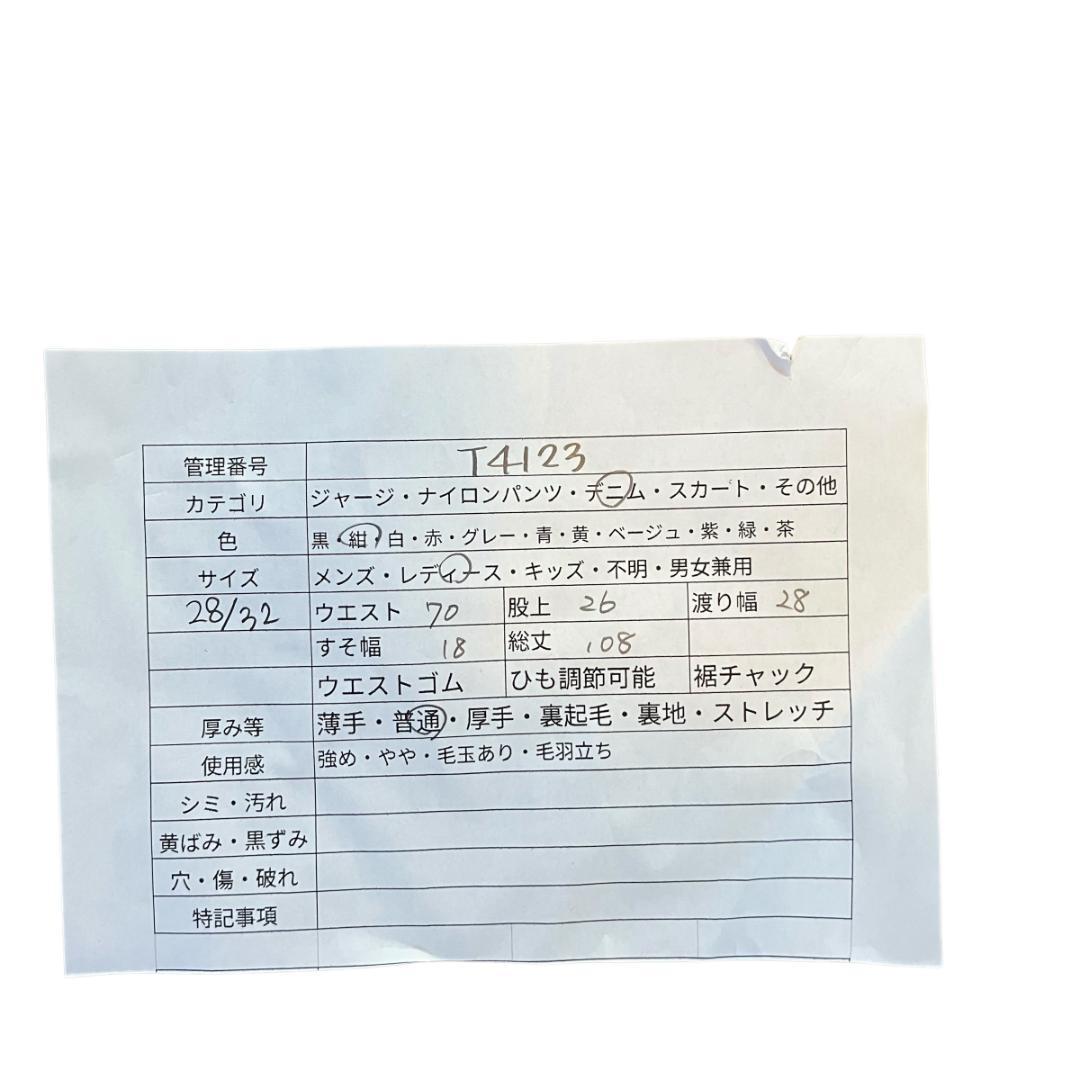 管理番号 T4123
カテゴリ ジャージ・ナイロンパンツ・デニム・スカート・その他
色 黒・紺・白・赤・グレー・青・黄・ベージュ・紫・緑・茶
サイズ メンズ・レディース・キッズ・不明・男女兼用
28/32 ウエスト 70 股上 26 渡り幅 28
すそ幅 18 総丈 108
ウエストゴム ひも調節可能 裾チャック
厚み等 薄手・普通・厚手・裏起毛・裏地・ストレッチ
使用感 強め・やや・毛玉あり・毛羽立ち
シミ・汚れ
黄ばみ・黒ずみ
穴・傷・破れ
特記事項